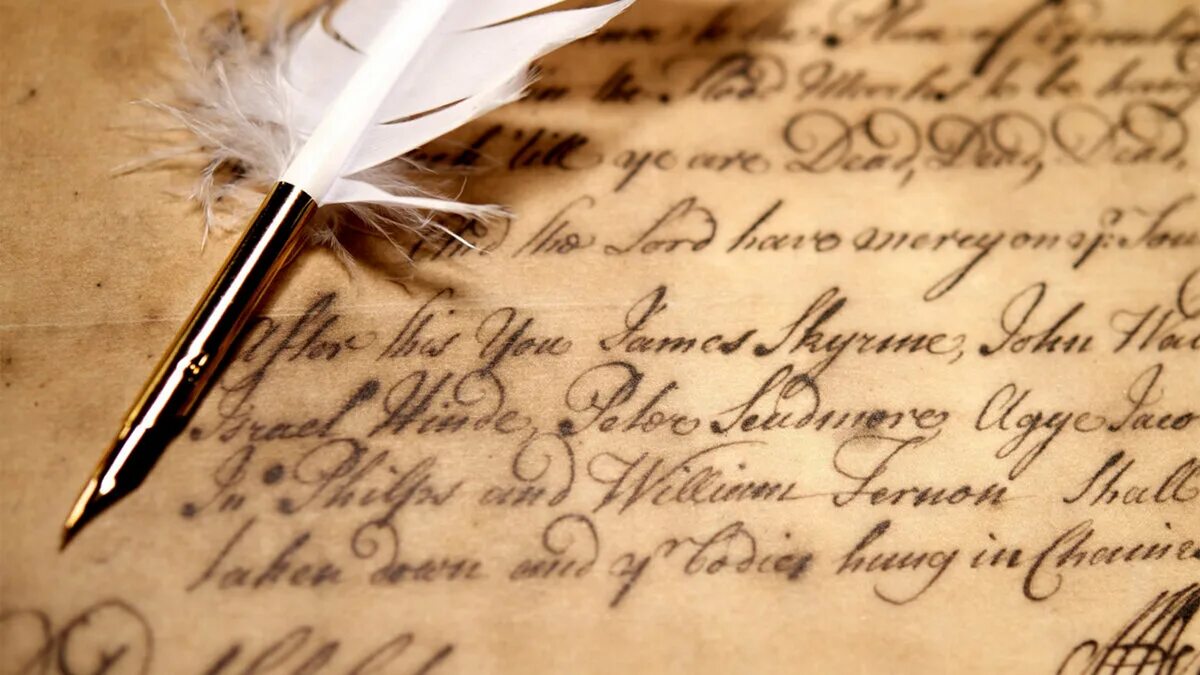 in the
till ye are Dead, Dead, Dead,
And the Lord have mercy on yr Sou
After this You James Skyrme, John Wa
Israel Hinde, Peter Scudmore Agge Jaco
Jno Philps and William Fernon Shall
taken down and yr bodies hung in Chaines